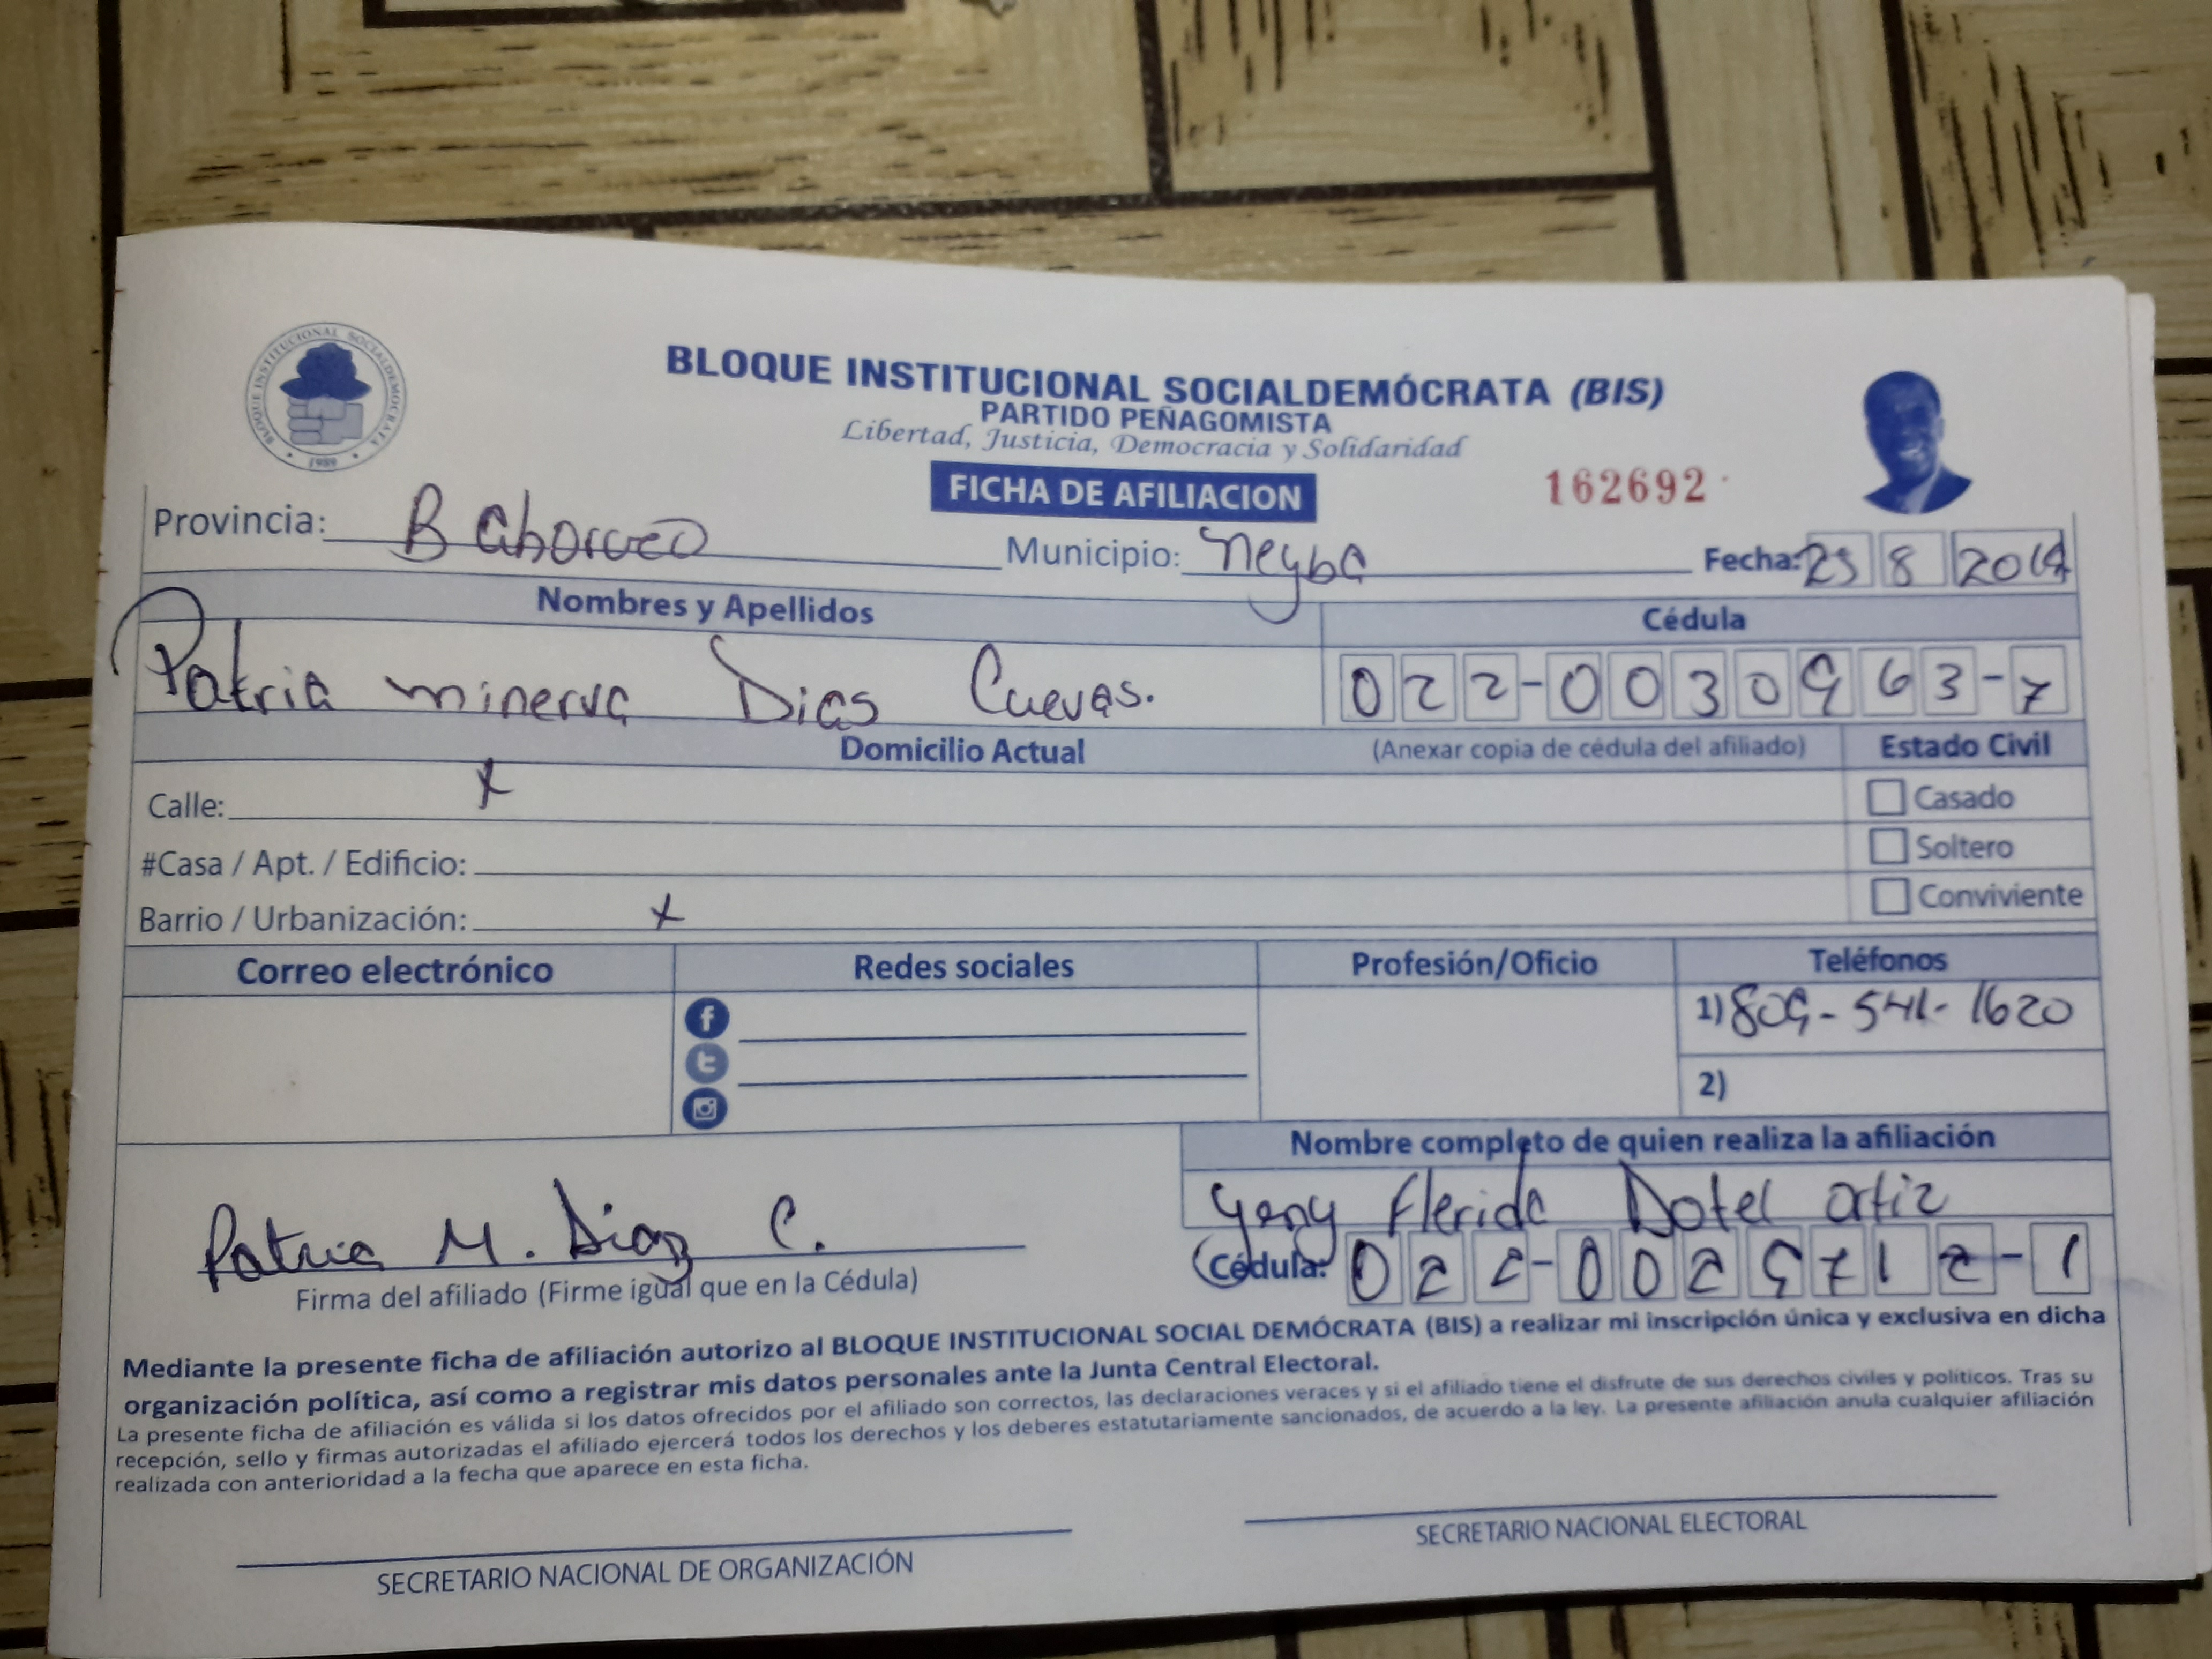 BLOQUE INSTITUCIONAL SOCIALDEMOCRATA
1989
BLOQUE INSTITUCIONAL SOCIALDEMÓCRATA (BIS)
PARTIDO PEÑAGOMISTA
Libertad, Justicia, Democracia y Solidaridad
FICHA DE AFILIACION 162692
Provincia: Municipio: Neyba Fecha: 25 8 2019
Nombres y Apellidos Cédula
Patria minerva Dias Cuevas. 022-0030963-7
Domicilio Actual (Anexar copia de cédula del afiliado) Estado Civil
Calle: x Casado
#Casa / Apt. / Edificio: Soltero
Barrio / Urbanización: x Conviviente
Correo electrónico Redes sociales Profesión/Oficio Teléfonos
1) 809-541-1620
2)
Nombre completo de quien realiza la afiliación
Yeny Flerida Dotel ortiz
Patria M. Diaz C. Cédula: 022-0029712-1
Firma del afiliado (Firme igual que en la Cédula)
Mediante la presente ficha de afiliación autorizo al BLOQUE INSTITUCIONAL SOCIAL DEMÓCRATA (BIS) a realizar mi inscripción única y exclusiva en dicha
organización política, así como a registrar mis datos personales ante la Junta Central Electoral.
La presente ficha de afiliación es válida si los datos ofrecidos por el afiliado son correctos, las declaraciones veraces y si el afiliado tiene el disfrute de sus derechos civiles y políticos. Tras su
recepción, sello y firmas autorizadas el afiliado ejercerá todos los derechos y los deberes estatutariamente sancionados, de acuerdo a la ley. La presente afiliación anula cualquier afiliación
realizada con anterioridad a la fecha que aparece en esta ficha.
SECRETARIO NACIONAL DE ORGANIZACIÓN SECRETARIO NACIONAL ELECTORAL